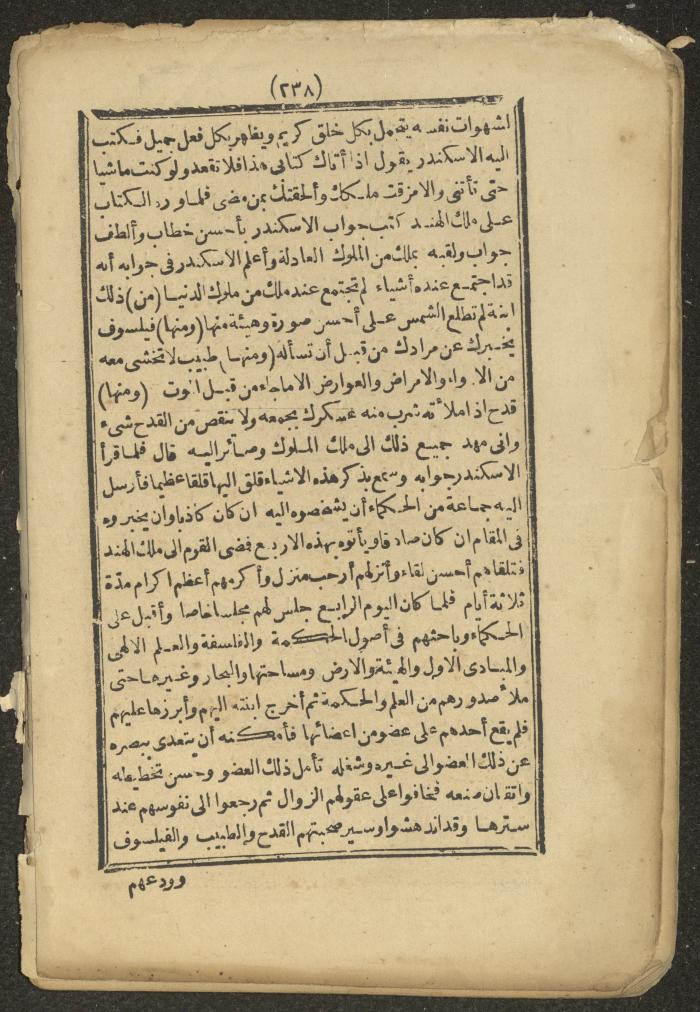 (٢٣٨)
لشهوات نفسه يتجمل بكل خلق كريم ويظاهر بكل فعل جميل فكتب
اليه الاسكندر يقول اذا أتاك كتابى هذا فلا تقعد ولو كنت ماشيا
حتى تأتنى والا مزقت ملكك وألحقتك بمن مضى فلما ورد الكتاب
على ملك الهند كتب جواب الاسكندر بأحسن خطاب وألطف
جواب ولقبه بملك من الملوك العادلة وأعلم الاسكندر فى جوابه أنه
قد اجتمع عنده أشياء لم تجتمع عند ملك من ملوك الدنيا (من) ذلك
ابنة لم تطلع الشمس على أحسن صورة وهيئة منها (ومنها) فيلسوف
يخبرك عن مرادك من قبل أن تسأله (ومنها) طبيب لا تخشى معه
من الادواء والامراض والعوارض الا ما جاء من قبل الموت (ومنها)
قدح اذا ملأته شرب منه عسكرك بجمعه ولا ينقص من القدح شىء
وانى مهد جميع ذلك الى ملك الملوك وصائر اليه قال فلما قرأ
الاسكندر جوابه وسمع بذكر هذه الاشياء قلق اليها قلقا عظيما فأرسل
اليه جماعة من الحكماء أن يشخصوه اليه ان كان كاذبا وان يخبروه
فى المقام ان كان صادقا ويأتوه بهذه الاربع فمضى القوم الى ملك الهند
فتلقاهم أحسن لقاء وأنزلهم أرحب منزل وأكرمهم أعظم اكرام مدّة
ثلاثة أيام فلما كان اليوم الرابع جلس لهم مجلسا خاصا وأقبل على
الحكماء وباحثهم فى أصول الحكمة والفلسفة والعلم الالهى
والمبادى الاول والهيئة والارض ومساحتها والبحار وغيرها حتى
ملأ صدورهم من العلم والحكمة ثم أخرج ابنته اليهم وأبرزها عليهم
فلم يقع أحدهم على عضو من اعضائها فأمكنه أن يتعدى ببصره
عن ذلك العضو الى غيره وشغله تأمل ذلك العضو وحسن تخطيطه
واتقان صنعه فخافوا على عقولهم الزوال ثم رجعوا الى نفوسهم عند
سترها وقد اندهشوا وسير صحبتهم القدح والطبيب والفيلسوف
وودعهم